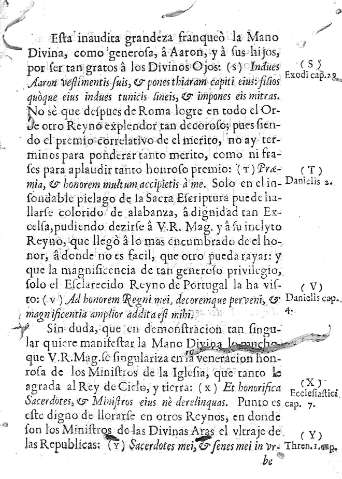 Esta inaudita grandeza franqueò la Mano
Divina, como generosa, à Aaron, y à sus hijos,
por ser tan gratos à los Divinos Ojos: (s) Indues
Aaron vestimentis suis, & pones thiaram capiti eius: filios
quòque eius indues tunicis lineis, & impones eis mitras.
No sè que despues de Roma logre en todo el Or-
be otro Reyno explendor tan decoroso; pues sien-
do el premio correlativo de el merito, no ay ter-
minos para ponderar tanto merito, como ni fra-
ses para aplaudir tanto honroso premio: (T) Præ-
mia, & honorem multum accipietis à me. Solo en el in-
sondable pielago de la Sacra Escriptura puede ha-
llarse colorido de alabanza, à dignidad tan Ex-
celsa, pudiendo dezirse à V.R. Mag. y à su inclyto
Reyno, que llegò à lo mas encumbrado de el ho-
nor, à donde no es facil, que otro pueda rayar: y
que la magnificencia de tan generoso privilegio,
solo el Esclarecido Reyno de Portugal la ha vis-
to: (v) Ad honorem Regni mei, decoremque perveni, &
magnificentia amplior addita est mihi.
Sin duda, que en demonstracion tan singu-
lar quiere manifestar la Mano Divina lo mucho
que V.R.Mag. se singulariza en la veneracion hon-
rosa de los Ministros de la Iglesia, que tanto le
agrada al Rey de Cielo, y tierra: (x) Et honorifica
Sacerdotes, & Ministros eius nè derelinquas. Punto es
este digno de llorarse en otros Reynos, en donde
son los Ministros de las Divinas Aras el vltraje de
las Republicas: (Y) Sacerdotes mei, & senes mei in vr-
be
(S)
Exodi cap.29.
(T)
Danielis 2.
(V)
Danielis cap.
4.
(X)
Ecclesiastici
cap. 7.
(Y)
Thren. 1. cap.